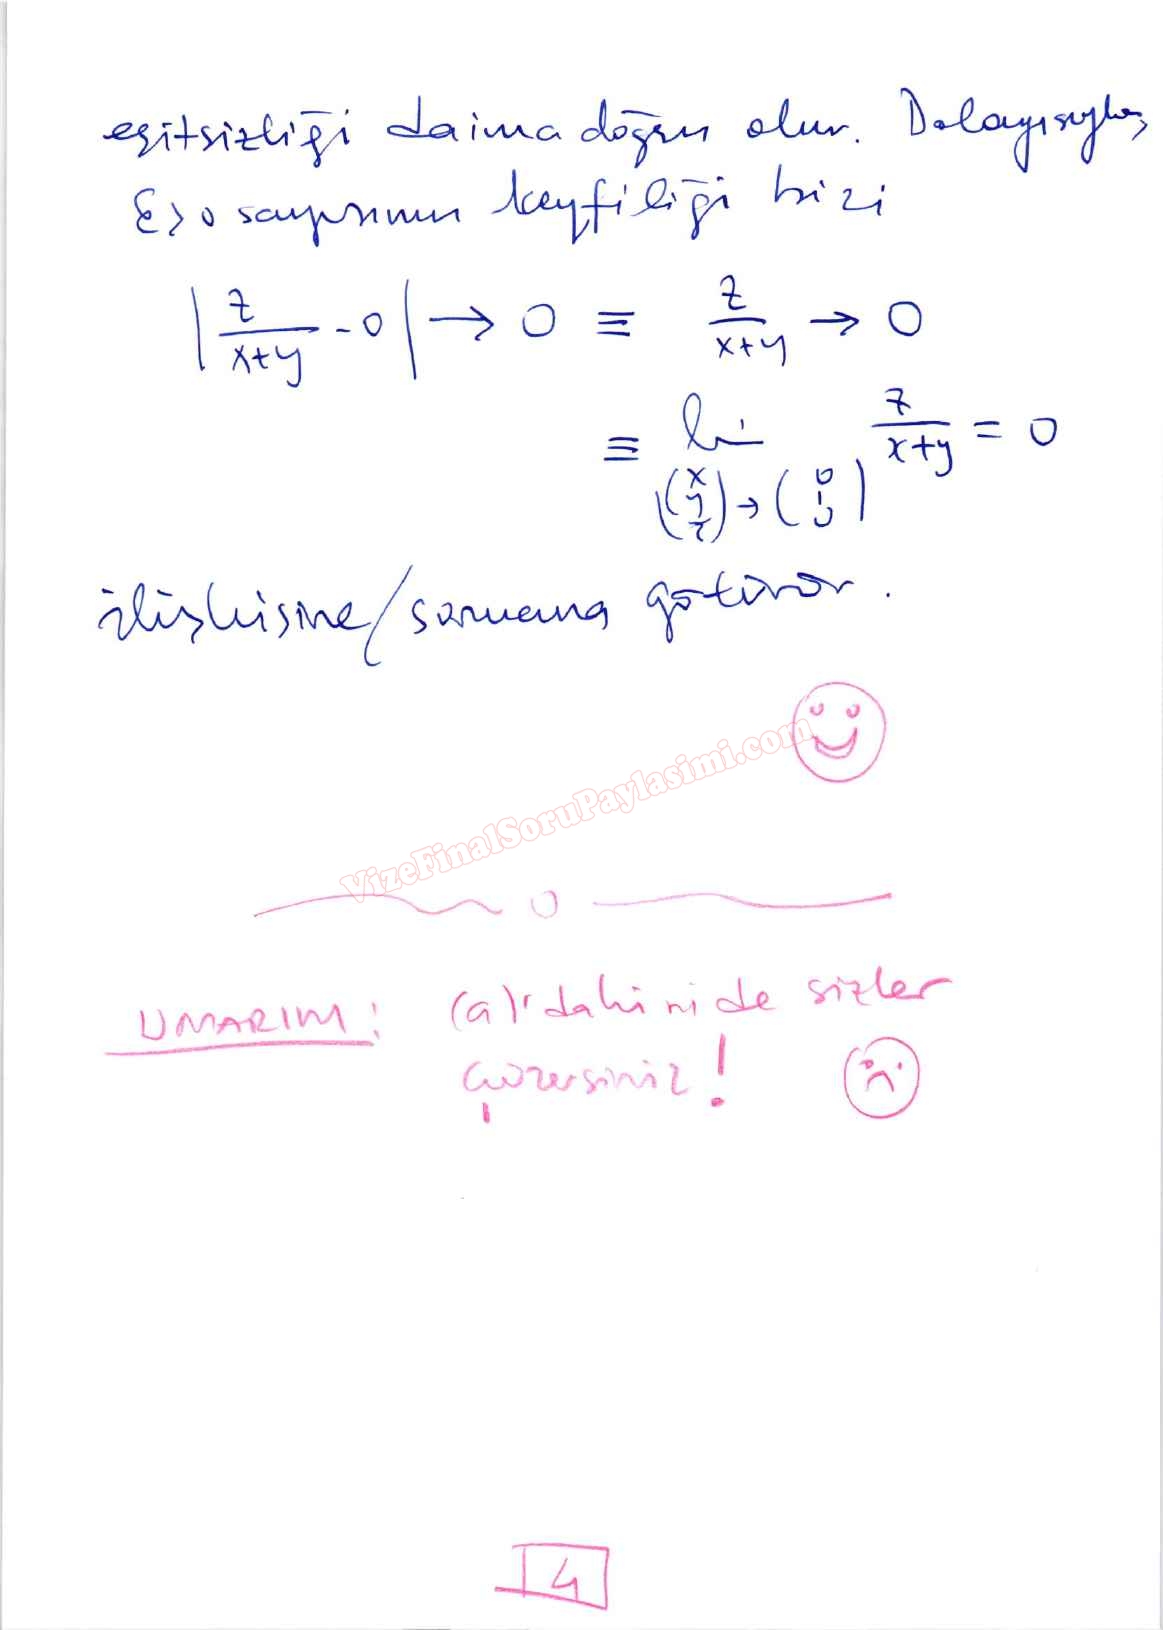 eşitsizliği daima doğru olur. Dolayısıyla,
ε>0 sayısının keyfiliği bizi
|z/(x+y) - 0| → 0 ≡ z/(x+y) → 0
≡ lim (x y z) → (0 1 0) z/(x+y) = 0
ilişkisine/sonucuna götürür.
VizeFinalSoruPaylasimi.com
0
UMARIM: (a)'dakini de sizler
çözersiniz!
4